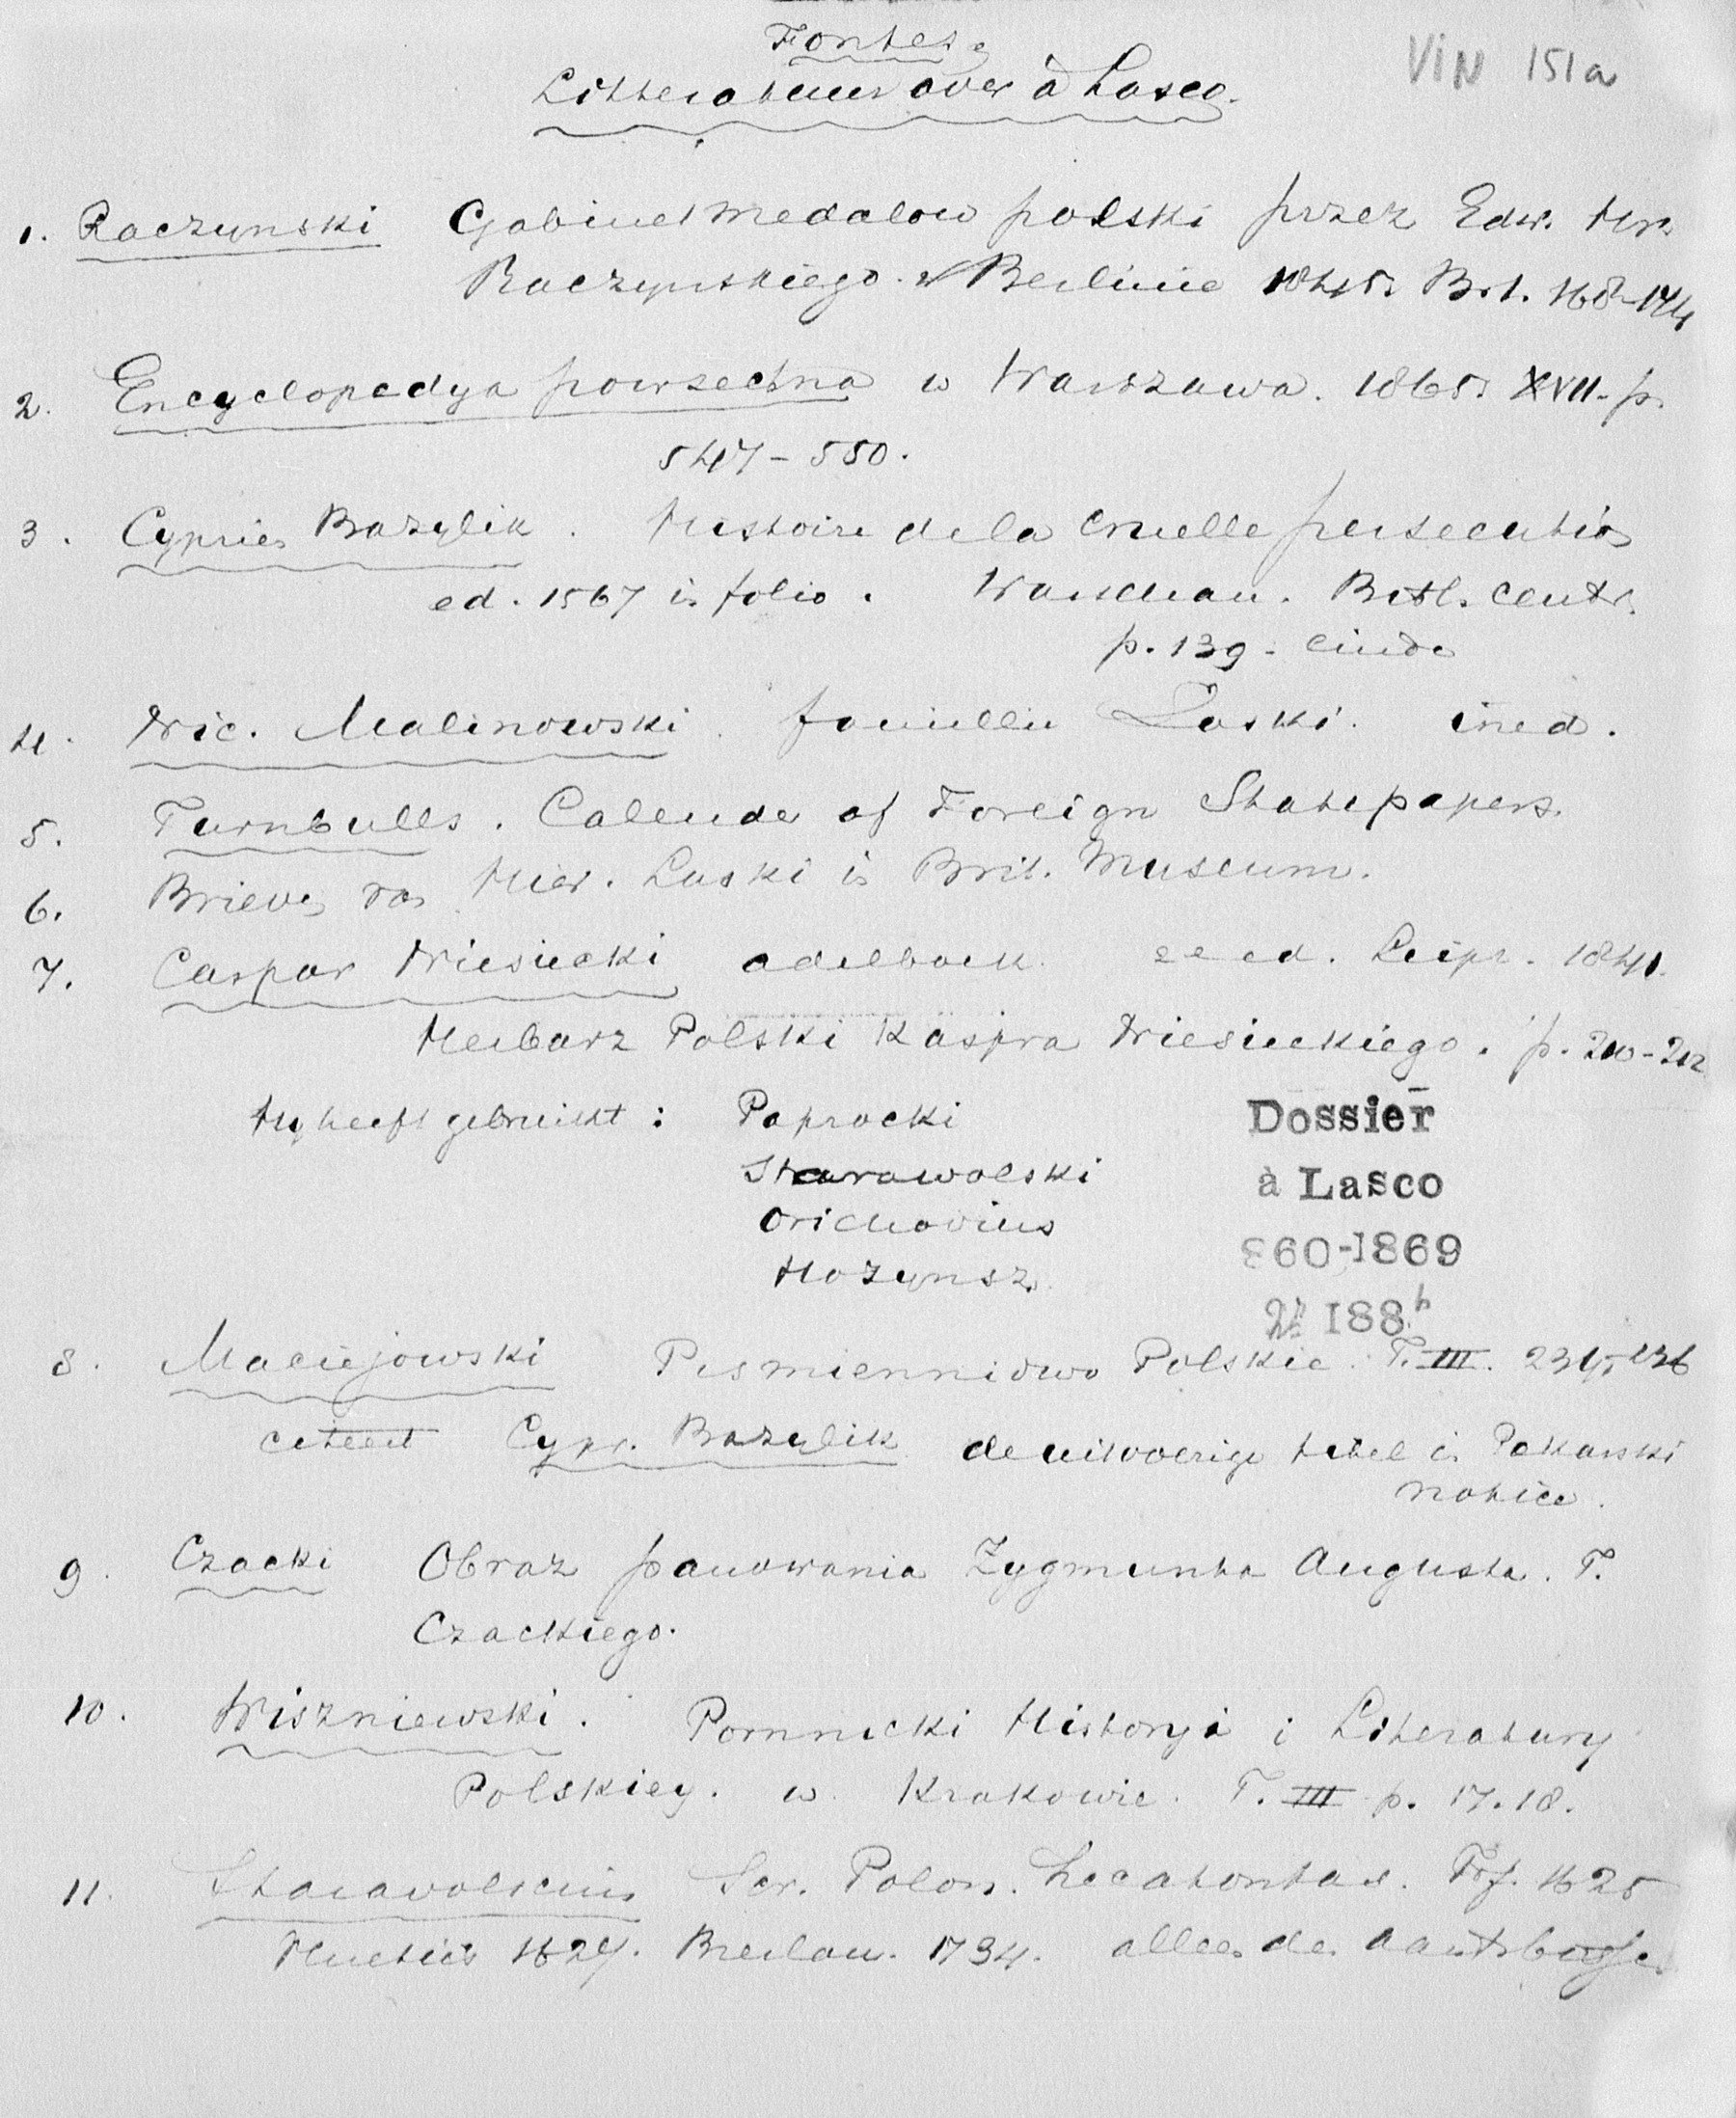 Fontes
Litteratuur over à Lasco.
VIN 151a
1. Raczynski Gabinet medalow polski przez Edw. Hr.
Raczynskiego. w Berlinie 1845. Brl. 168-174
2. Encyclopedya powsechna w Warszawa. 1865. XVII. p.
547-550.
3. Cyprien Bazylik. Histoire de la cruelle persecution
ed. 1567 in folio. Warschau. Bibl. centr.
p. 139. einde
4. Nic. Malinowski. familie Laski. ined.
5. Turnbulls. Calende of Foreign State papers.
6. Brieven van Hier. Laski in Brit. Museum.
7. Caspar Niesiecki adelboek. 2e ed. Leipz. 1841.
Herbarz Polski Kaspra Niesieckiego. p. 210-212
Hy heeft gebruikt: Paprocki
Starawolski
Orichovius
Dossier
à Lasco
860-1869
188
8. Maciejowski Pismiennictwo Polskie. T. III. 234,
citeert Cypr. Bazylik de uitvoerige titel in Pekarski
notice.
9. Czacki Obraz panowania Zygmunta Augusta. T.
Czackiego.
10. Wiszniewski. Pomnicki Historyi i Literatury
Polskiey. w Krakowie. T. III p. 17. 18.
11. Staravolscius Scr. Polon. hecatontas. Frf. 1625
1627. Breslau. 1734. alleen de